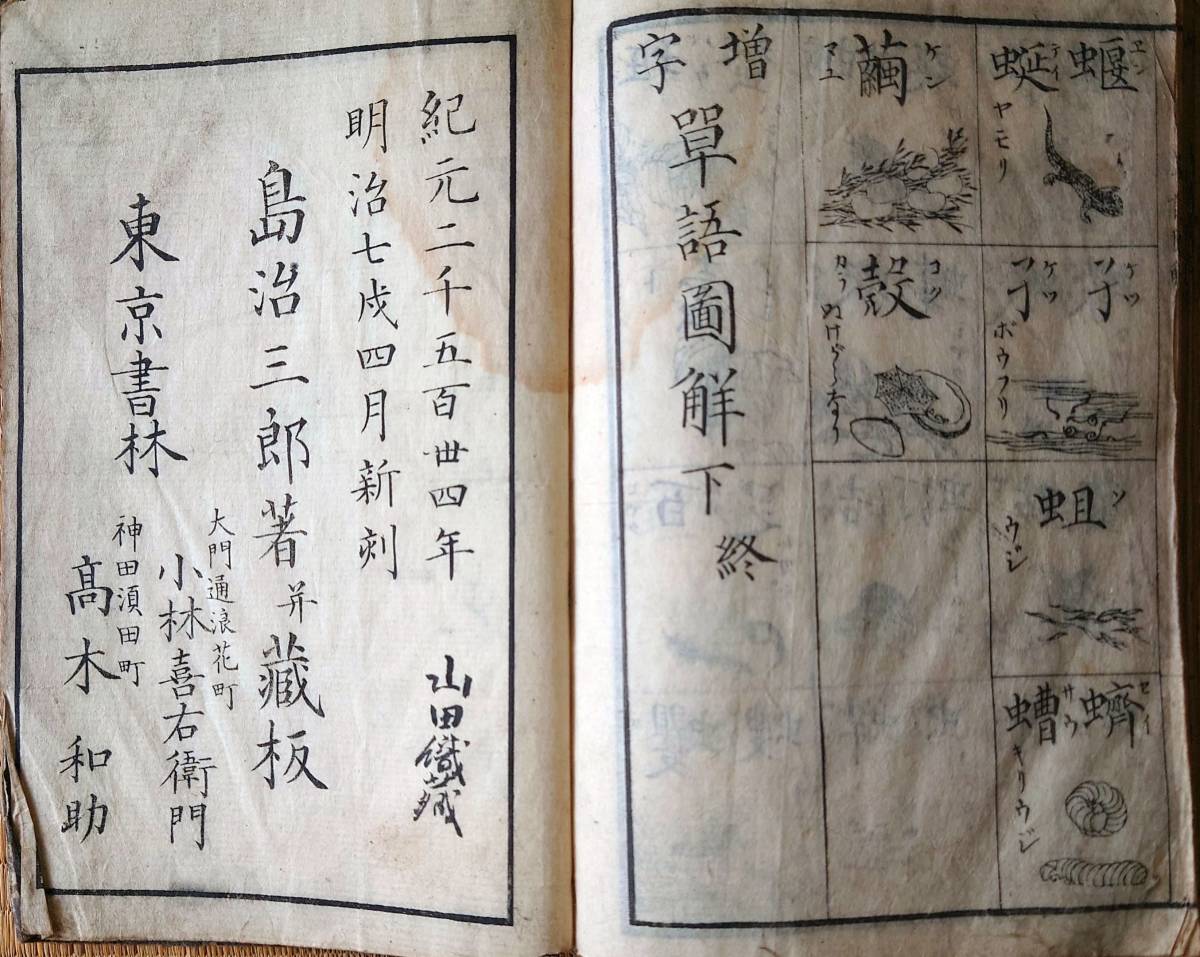 蝘蜓
エン
テイ
ヤモリ
孑孑
ケツ
ケツ
ボウフリ
蛆
ソ
ウジ
蠐螬
セイ
サウ
キリウジ
繭
ケン
マユ
殼
コク
カラ
ぬけがらなり
增字單語圖解下終
紀元二千五百卅四年
山田
明治七戌四月新刻
島治三郎著并藏板
東京書林
大門通浪花町
小林喜右衛門
神田須田町
髙木和助